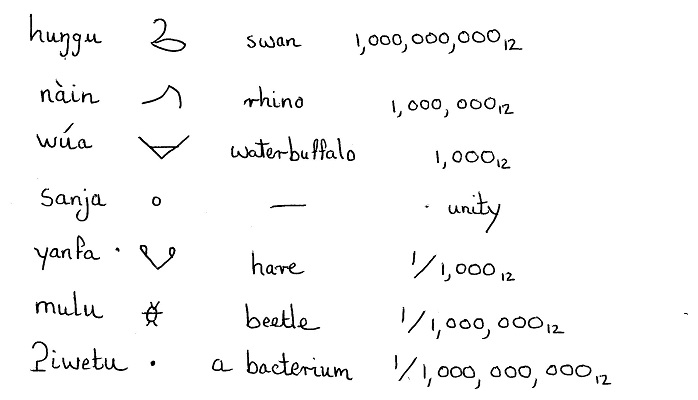 huŋgu swan 1,000,000,000₁₂
nàin rhino 1,000,000₁₂
wúa waterbuffalo 1,000₁₂
sanja — · unity
yanfa · hare 1/1,000₁₂
mulu beetle 1/1,000,000₁₂
ʔiwetu · a bacterium 1/1,000,000,000₁₂